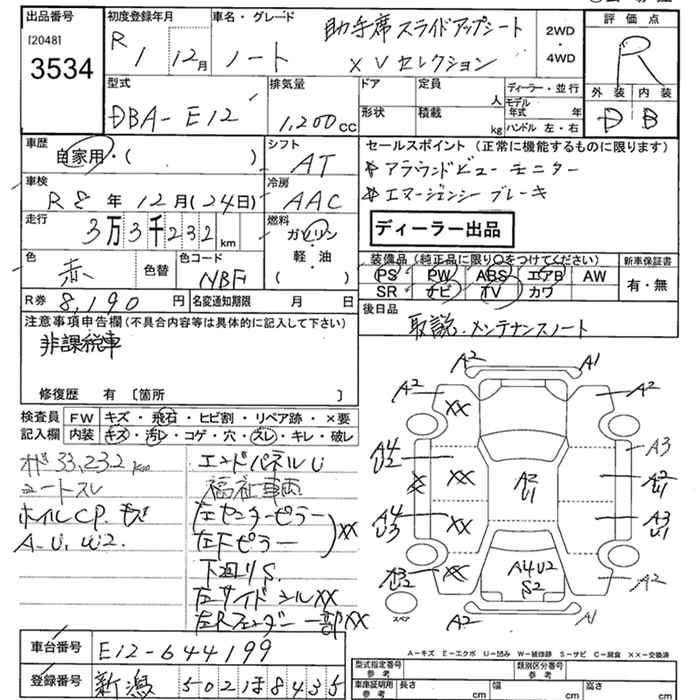 出品番号
[2048]
3534
初度登録年月
R 1 12月
車名・グレード
ノート
助手席 スライドアップシート
XVセレクション
2WD
・
4WD
評価点
R
外装 内装
D B
型式
DBA-E12
排気量
1,200cc
ドア
形状
定員
人
積載
kg
ディーラー・並行
モデル年式 年
ハンドル 左・右
車歴
自家用・( )
シフト
AT
セールスポイント (正常に機能するものに限ります)
* アラウンドビューモニター
* エマージェンシーブレーキ
ディーラー出品
車検
R8年12月(24日)
冷房
AAC
走行
3万3千232km
燃料
ガソリン
軽・油
( )
色
赤
色替
色コード
NBF
R券 8,190円
名変通知期限 月 日
装備品 (純正品に限り○をつけてください)
PS PW ABS エアB AW
SR ナビ TV カワ
新車保証書
有・無
後日品
取説.メンテナンスノート
注意事項申告欄 (不具合内容等は具体的に記入して下さい)
非課税車
修復歴 有 〔箇所 〕
検査員記入欄
FW キズ・飛石・ヒビ割・リペア跡・×要
内装 キズ・汚レ・コゲ・穴・スレ・キレ・破レ
33,232km
シートスレ
ホイルCP.キズ
A-U,U2.
エンドパネルU
福祉車両
(左センターピラー
左Fピラー)XX
下回りS.
左サイドシルXX
左Rフェンダー一部XX
A2 A1
A2 XX A2
A4 U2 A3
X XX A2 U1 A2 U1
A4 U3 XX A3 U1
A3 U2 XX A4U2 S2 A2
A2 A1
スペア
車台番号 E12-644199
登録番号 新潟 502 ほ 8435
A-キズ E-エクボ U-凹み W-補修跡 S-サビ C-腐食 XX-交換済
型式指定番号
参考
類別区分番号
参考
車庫証明用
参考
長さ cm 幅 cm 高さ cm